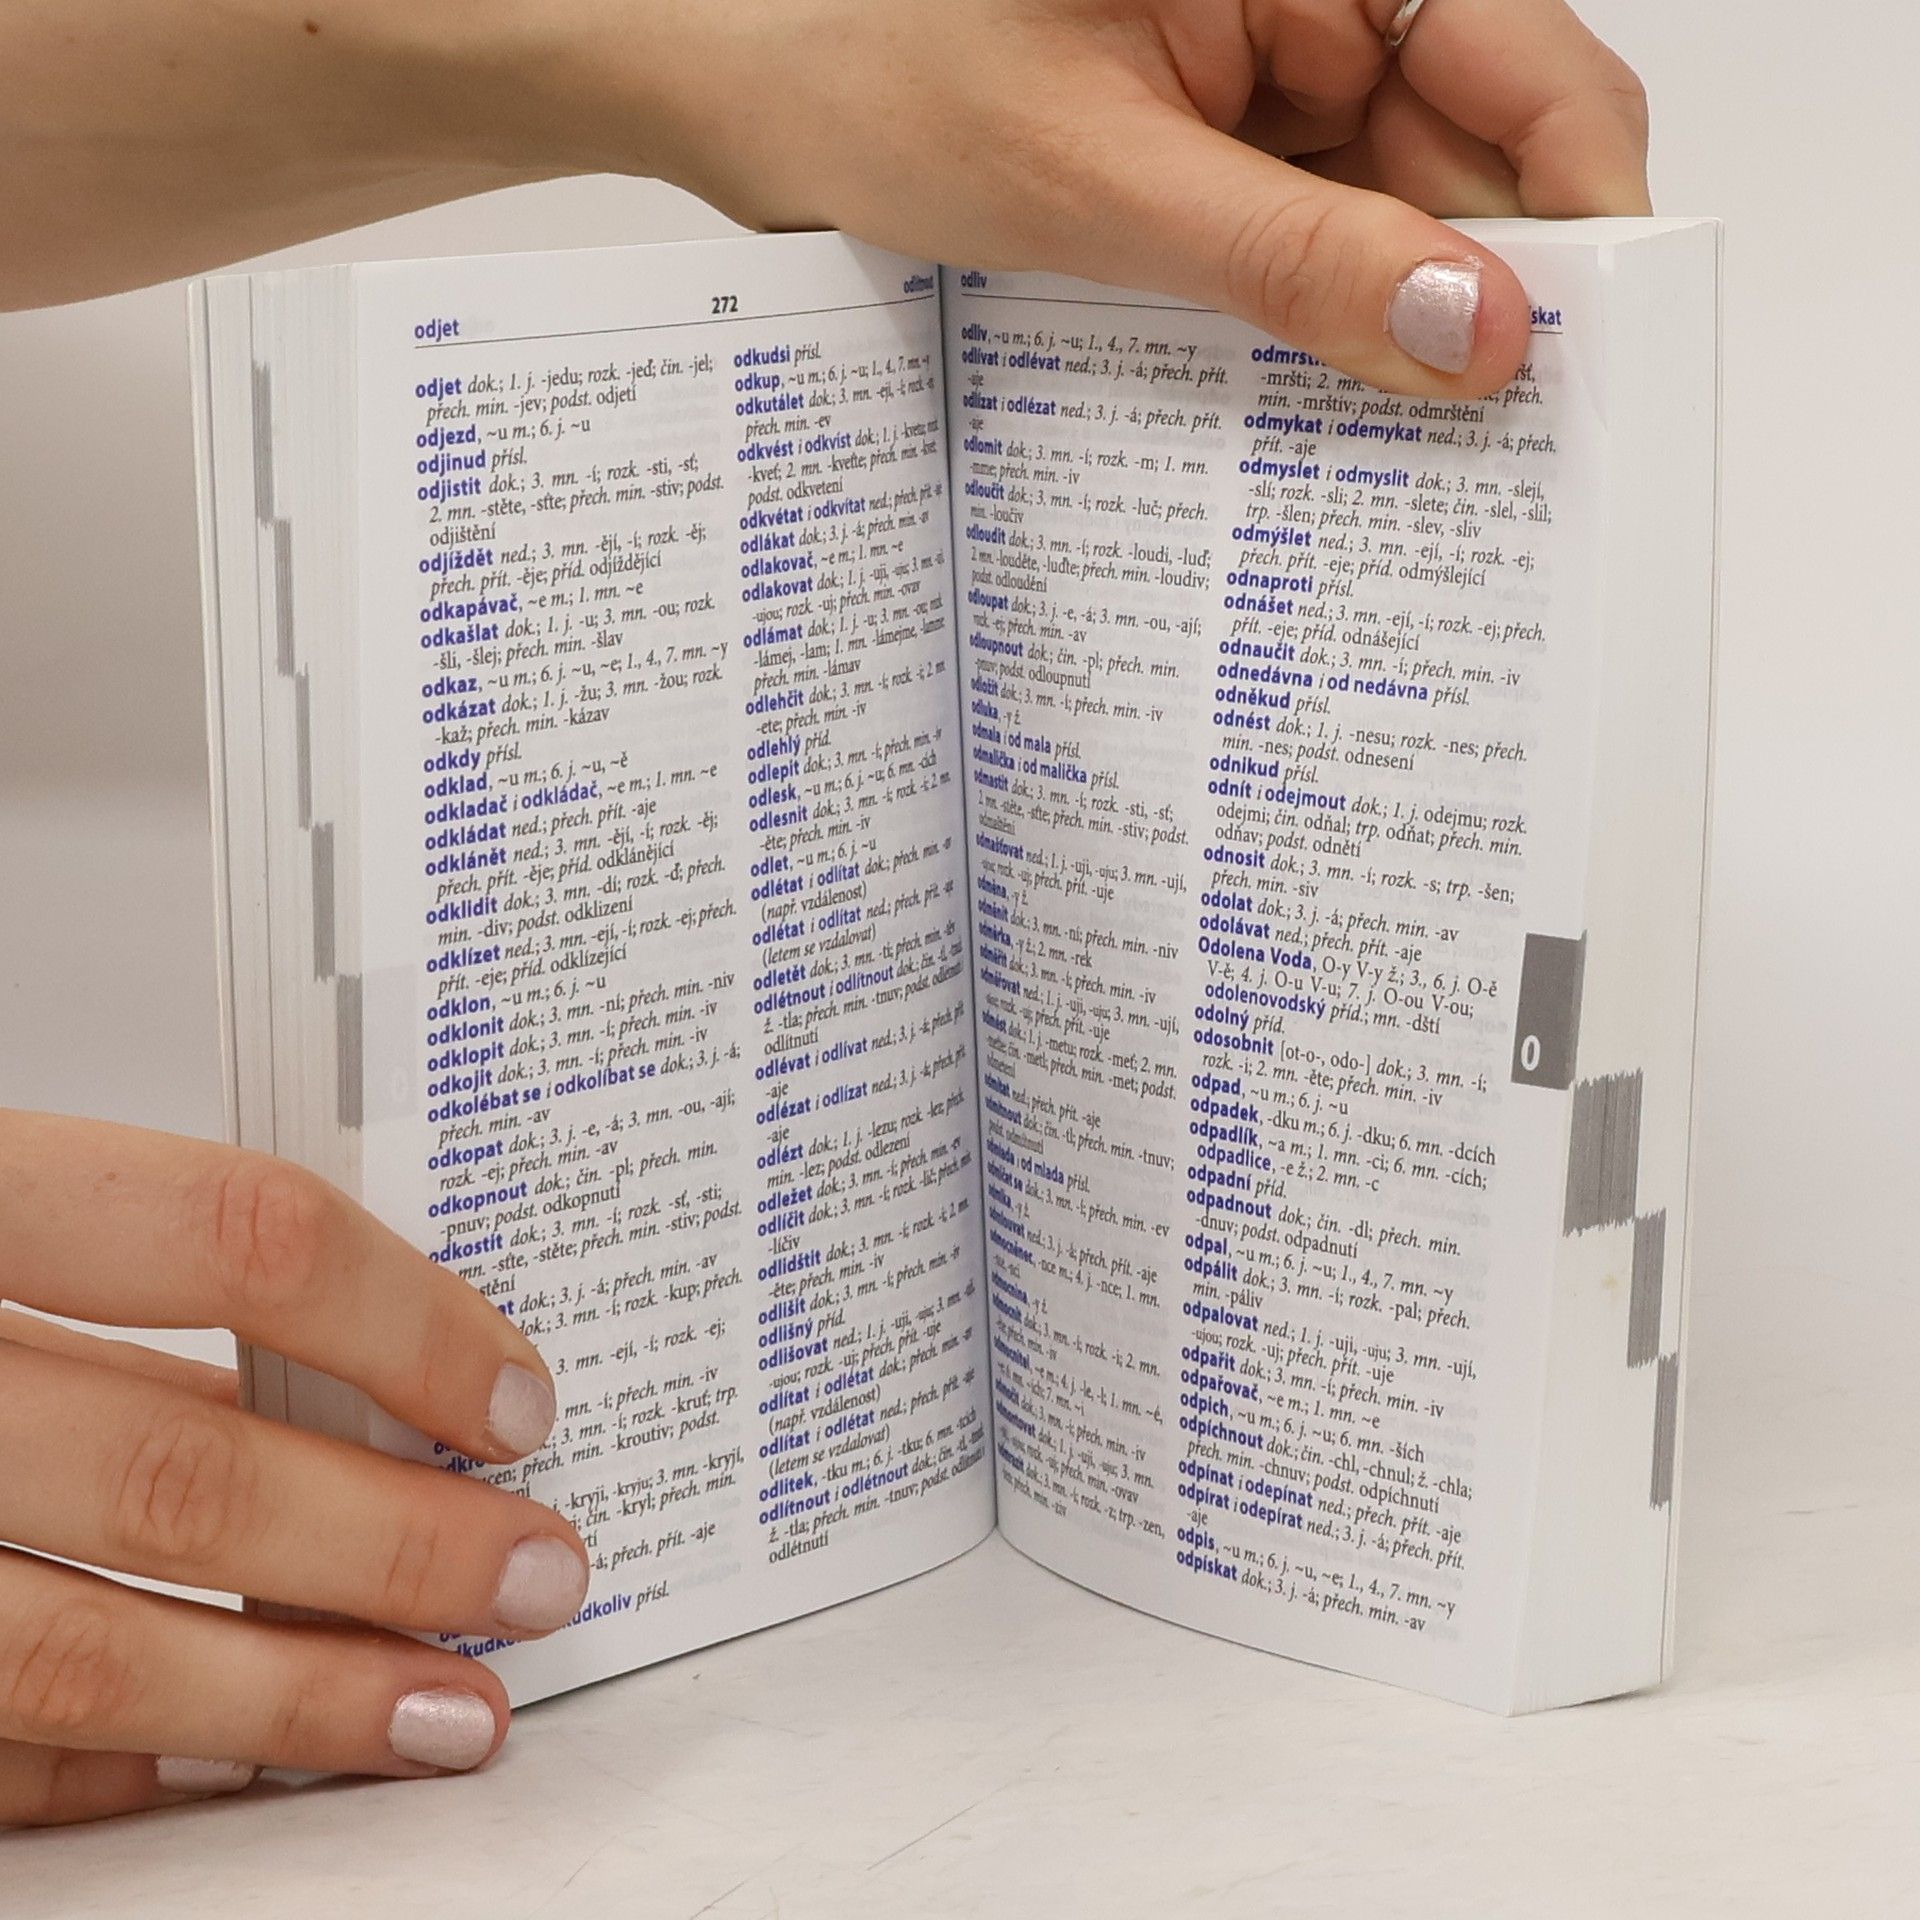 odjet
272
odlítnout
odjet dok.; 1. j. -jedu; rozk. -jeď; čin. -jel;
přech. min. -jev; podst. odjetí
odjezd, ~u m.; 6. j. ~u
odjinud přísl.
odjistit dok.; 3. mn. -í; rozk. -sti, -sť;
2. mn. -stěte, -sťte; přech. min. -stiv; podst.
odjištění
odjíždět ned.; 3. mn. -ějí, -í; rozk. -ěj;
přech. přít. -ěje; příd. odjíždějící
odkapávač, ~e m.; 1. mn. ~e
odkašlat dok.; 1. j. -u; 3. mn. -ou; rozk.
-šli, -šlej; přech. min. -šlav
odkaz, ~u m.; 6. j. ~u, ~e; 1., 4., 7. mn. ~y
odkázat dok.; 1. j. -žu; 3. mn. -žou; rozk.
-kaž; přech. min. -kázav
odkdy přísl.
odklad, ~u m.; 6. j. ~u, ~ě
odkladač i odkládač, ~e m.; 1. mn. ~e
odkládat ned.; přech. přít. -aje
odklánět ned.; 3. mn. -ějí, -í; rozk. -ěj;
přech. přít. -ěje; příd. odklánějící
odklidit dok.; 3. mn. -dí; rozk. -ď; přech.
min. -div; podst. odklizení
odklízet ned.; 3. mn. -ejí, -í; rozk. -ej; přech.
přít. -eje; příd. odklízející
odklon, ~u m.; 6. j. ~u
odklonit dok.; 3. mn. -ní; přech. min. -niv
odklopit dok.; 3. mn. -í; přech. min. -iv
odkojit dok.; 3. mn. -í; přech. min. -iv
odkolébat se i odkolíbat se dok.; 3. j. -á;
přech. min. -av
odkopat dok.; 3. j. -e, -á; 3. mn. -ou, -ají;
rozk. -ej; přech. min. -av
odkopnout dok.; čin. -pl; přech. min.
-pnuv; podst. odkopnutí
odkostit dok.; 3. mn. -í; rozk. -sť, -sti;
mn. -sťte, -stěte; přech. min. -stiv; podst.
dok.; 3. j. -á; přech. min. -av
dok.; 3. mn. -í; rozk. -kup; přech.
3. mn. -ejí, -í; rozk. -ej;
mn. -í; přech. min. -iv
3. mn. -í; rozk. -kruť; trp.
přech. min. -kroutiv; podst.
-kryji, -kryju; 3. mn. -kryjí,
čin. -kryl; přech. min.
-á; přech. přít. -aje
přísl.
odkudsi přísl.
odkup, ~u m.; 6. j. ~u; 1., 4., 7. mn. ~y
odkutálet dok.; 3. mn. -ejí, -í; rozk. -ej
přech. min. -ev
odkvést i odkvíst dok.; 1. j. -kvetu; rozk.
-kveť; 2. mn. -kveťte; přech. min. -kvet;
podst. odkvetení
odkvétat i odkvítat ned.; přech. přít. -aje
odlákat dok.; 3. j. -á; přech. min. -av
odlakovač, ~e m.; 1. mn. ~e
odlakovat dok.; 1. j. -uji, -uju; 3. mn. -ují,
-ujou; rozk. -uj; přech. min. -ovav
odlámat dok.; 1. j. -u; 3. mn. -ou; rozk.
-lámej, -lam; 1. mn. -lámejme, -lamme
přech. min. -lámav
odlehčit dok.; 3. mn. -í; rozk. -i; 2. mn.
-ete; přech. min. -iv
odlehlý příd.
odlepit dok.; 3. mn. -í; přech. min. -iv
odlesk, ~u m.; 6. j. ~u; 6. mn. -cích
odlesnit dok.; 3. mn. -í; rozk. -i; 2. mn.
-ěte; přech. min. -iv
odlet, ~u m.; 6. j. ~u
odlétat i odlítat dok.; přech. min. -av
(např. vzdálenost)
odlétat i odlítat ned.; přech. přít. -aje
(letem se vzdalovat)
odletět dok.; 3. mn. -tí; přech. min. -těv
odlétnout i odlítnout dok.; čin. -tl, -tnul
ž. -tla; přech. min. -tnuv; podst. odlétnutí
odlítnutí
odlévat i odlívat ned.; 3. j. -á; přech. přít.
-aje
odlézat i odlízat ned.; 3. j. -á; přech. přít.
-aje
odlézt dok.; 1. j. -lezu; rozk. -lez; přech.
min. -lez; podst. odlezení
odležet dok.; 3. mn. -í; přech. min. -ev
odlíčit dok.; 3. mn. -í; rozk. -lič; přech. min.
-líčiv
odlidštit dok.; 3. mn. -í; rozk. -i; 2. mn.
-ěte; přech. min. -iv
odlišit dok.; 3. mn. -í; přech. min. -iv
odlišný příd.
odlišovat ned.; 1. j. -uji, -uju; 3. mn. -ují,
-ujou; rozk. -uj; přech. přít. -uje
odlítat i odlétat dok.; přech. min. -av
(např. vzdálenost)
odlítat i odlétat ned.; přech. přít. -aje
(letem se vzdalovat)
odlitek, -tku m.; 6. j. -tku; 6. mn. -tcích
odlítnout i odlétnout dok.; čin. -tl, -tnul
ž. -tla; přech. min. -tnuv; podst. odlítnutí
odlétnutí
odliv
odliv, ~u m.; 6. j. ~u; 1., 4., 7. mn. ~y
odlívat i odlévat ned.; 3. j. -á; přech. přít.
-aje
odlízat i odlézat ned.; 3. j. -á; přech. přít.
-aje
odlomit dok.; 3. mn. -í; rozk. -m; 1. mn.
-mme; přech. min. -iv
odloučit dok.; 3. mn. -í; rozk. -luč; přech.
min. -loučiv
odloudit dok.; 3. mn. -í; rozk. -loudi, -luď;
2. mn. -louděte, -luďte; přech. min. -loudiv;
podst. odloudění
odloupat dok.; 3. j. -e, -á; 3. mn. -ou, -ají;
rozk. -ej; přech. min. -av
odloupnout dok.; čin. -pl; přech. min.
-pnuv; podst. odloupnutí
odložit dok.; 3. mn. -í; přech. min. -iv
odluka, -y ž.
odmala i od mala přísl.
odmalička i od malička přísl.
odmastit dok.; 3. mn. -í; rozk. -sti, -sť;
2. mn. -stěte, -sťte; přech. min. -stiv; podst.
odmaštění
odmašťovat ned.; 1. j. -uji, -uju; 3. mn. -ují,
-ujou; rozk. -uj; přech. přít. -uje
odměna, -y ž.
odměnit dok.; 3. mn. -ní; přech. min. -niv
odměrka, -y ž.; 2. mn. -rek
odměřit dok.; 3. mn. -í; přech. min. -iv
odměřovat ned.; 1. j. -uji, -uju; 3. mn. -ují,
-ujou; rozk. -uj; přech. přít. -uje
odmést dok.; 1. j. -metu; rozk. -meť; 2. mn.
-meťte; čin. -metl; přech. min. -met; podst.
odmetení
odmítat ned.; přech. přít. -aje
odmítnout dok.; čin. -tl; přech. min. -tnuv;
podst. odmítnutí
odmlada i od mlada přísl.
odmlčet se dok.; 3. mn. -í; přech. min. -ev
odmlka, -y ž.
odmlouvat ned.; 3. j. -á; přech. přít. -aje
odmocněnec, -nce m.; 4. j. -nce; 1. mn.
odmocnina, -y ž.
odmocnit dok.; 3. mn. -í; rozk. -i; 2. mn.
-ěte; přech. min. -iv
odmocnitel, ~e m.; 4. j. -le, -l; 1. mn. ~é,
odmočit dok.; 3. mn. -í; přech. min. -iv
odmontovat dok.; 1. j. -uji, -uju; 3. mn.
-ují, -ujou; rozk. -uj; přech. min. -ovav
odmrazit dok.; 3. mn. -í; rozk. -z; trp. -zen,
přech. min. -ziv
-mršti; 2. mn. přech.
min. -mrštiv; podst. odmrštění
odmykat i odemykat ned.; 3. j. -á; přech.
přít. -aje
odmyslet i odmyslit dok.; 3. mn. -slejí,
-slí; rozk. -sli; 2. mn. -slete; čin. -slel, -slil;
trp. -šlen; přech. min. -slev, -sliv
odmýšlet ned.; 3. mn. -ejí, -í; rozk. -ej;
přech. přít. -eje; příd. odmýšlející
odnaproti přísl.
odnášet ned.; 3. mn. -ejí, -í; rozk. -ej; přech.
přít. -eje; příd. odnášející
odnaučit dok.; 3. mn. -í; přech. min. -iv
odnedávna i od nedávna přísl.
odněkud přísl.
odnést dok.; 1. j. -nesu; rozk. -nes; přech.
min. -nes; podst. odnesení
odnikud přísl.
odnít i odejmout dok.; 1. j. odejmu; rozk.
odejmi; čin. odňal; trp. odňat; přech. min.
odňav; podst. odnětí
odnosit dok.; 3. mn. -í; rozk. -s; trp. -šen;
přech. min. -siv
odolat dok.; 3. j. -á; přech. min. -av
odolávat ned.; přech. přít. -aje
Odolena Voda, O-y V-y ž.; 3., 6. j. O-ě
V-ě; 4. j. O-u V-u; 7. j. O-ou V-ou;
odolenovodský příd.; mn. -dští
odolný příd.
odosobnit [ot-o-, odo-] dok.; 3. mn. -í;
rozk. -i; 2. mn. -ěte; přech. min. -iv
odpad, ~u m.; 6. j. ~u
odpadek, -dku m.; 6. j. -dku; 6. mn. -dcích
odpadlík, ~a m.; 1. mn. -ci; 6. mn. -cích;
odpadlice, -e ž.; 2. mn. -c
odpadní příd.
odpadnout dok.; čin. -dl; přech. min.
-dnuv; podst. odpadnutí
odpal, ~u m.; 6. j. ~u; 1., 4., 7. mn. ~y
odpálit dok.; 3. mn. -í; rozk. -pal; přech.
min. -páliv
odpalovat ned.; 1. j. -uji, -uju; 3. mn. -ují,
-ujou; rozk. -uj; přech. přít. -uje
odpařit dok.; 3. mn. -í; přech. min. -iv
odpařovač, ~e m.; 1. mn. ~e
odpich, ~u m.; 6. j. ~u; 6. mn. -ších
odpíchnout dok.; čin. -chl, -chnul; ž. -chla;
přech. min. -chnuv; podst. odpíchnutí
odpínat i odepínat ned.; přech. přít. -aje
odpírat i odepírat ned.; 3. j. -á; přech. přít.
-aje
odpis, ~u m.; 6. j. ~u, ~e; 1., 4., 7. mn. ~y
odpískat dok.; 3. j. -á; přech. min. -av
O